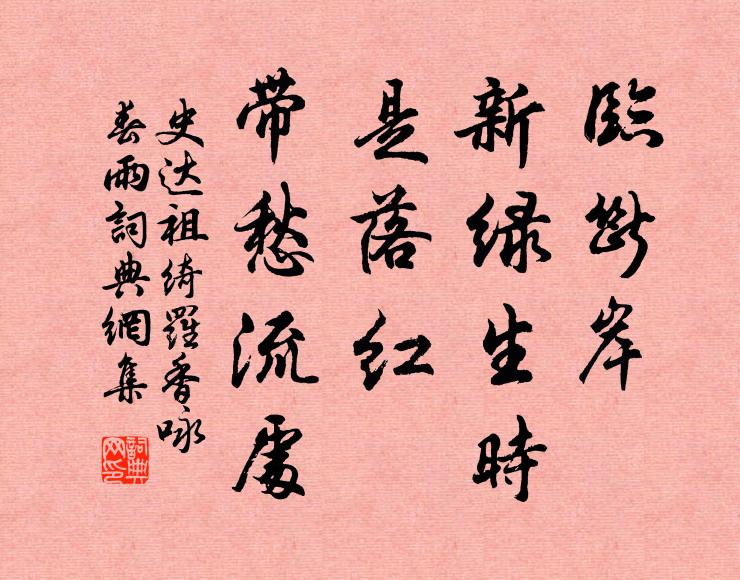 臨斷岸
新绿生時
是落红
带愁流處
史达祖绮羅香咏
春雨詞典網集
詞典网印